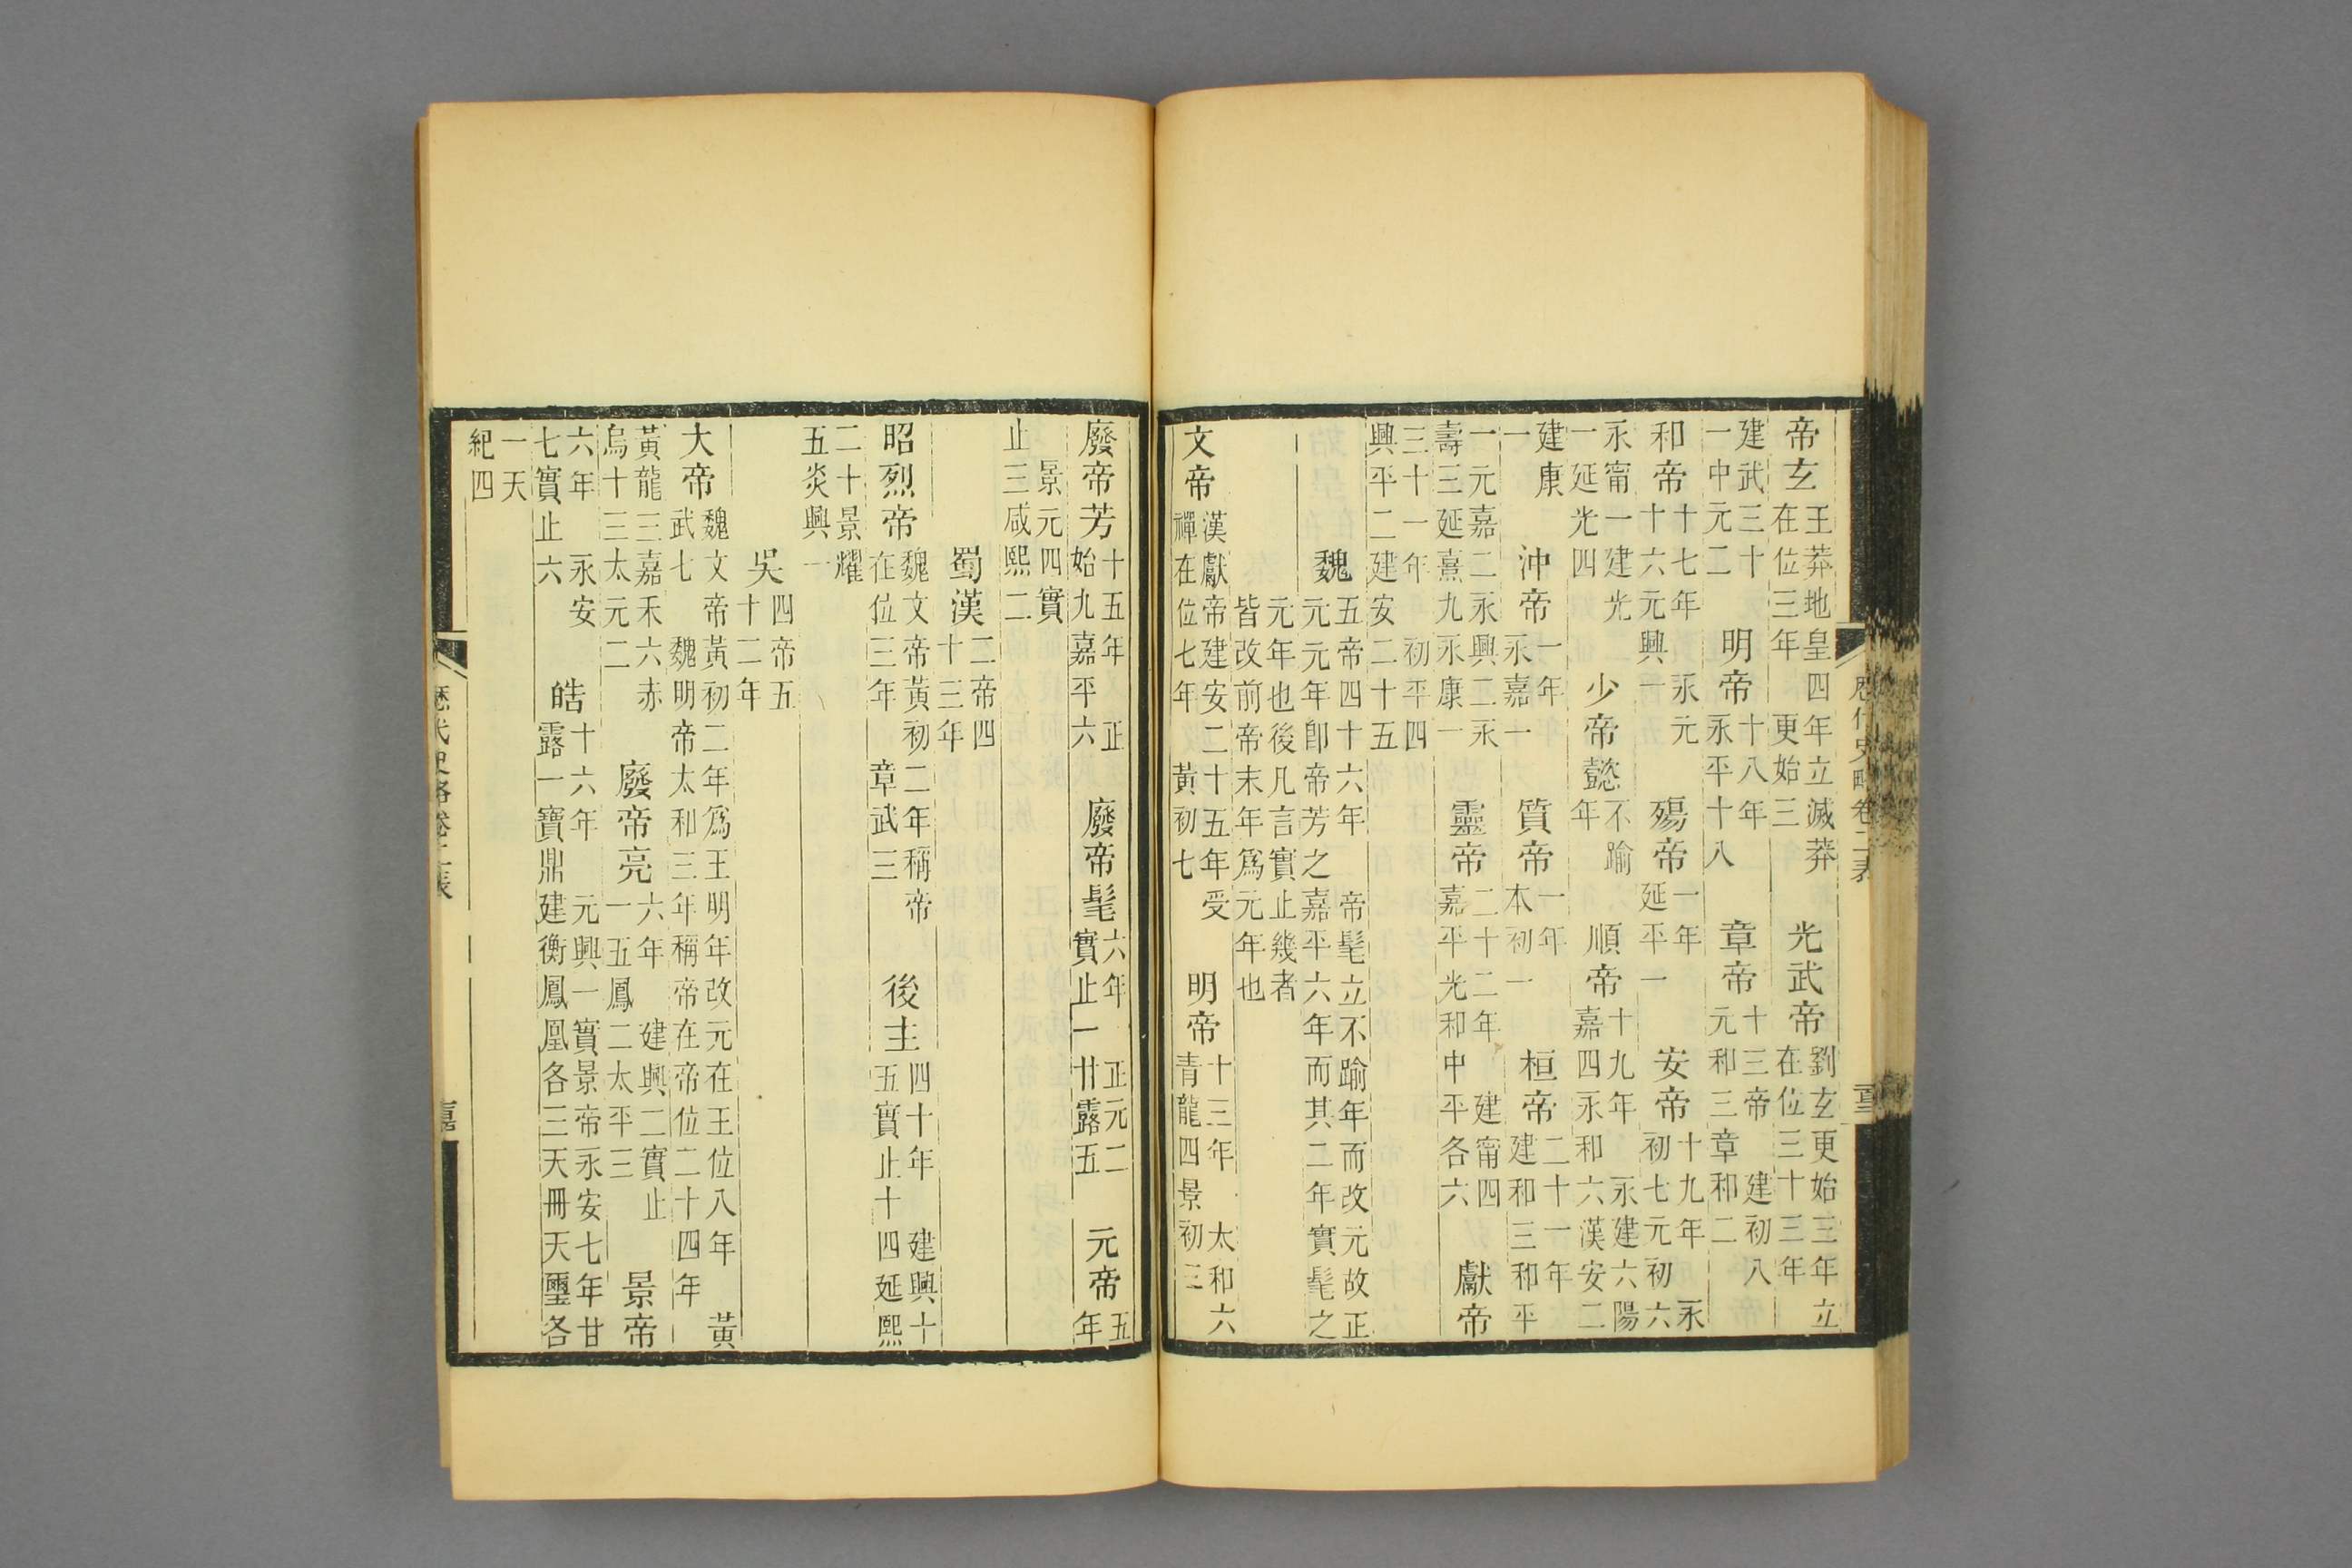 歷代史略卷二表
帝玄 王莽地皇四年立滅莽在位三年 更始三 光武帝 劉玄更始三年立在位三十三年
建武三十一中元二 明帝 十八年永平十八 章帝 十三帝 建初八元和三章和二
和帝 十七年 永元十六元興一 殤帝 一年延平一 安帝 十九年 永初七元初六
永甯一建光一延光四 少帝懿 不踰年 順帝 十九年 永建六陽嘉四永和六漢安二
建康一 沖帝 一年永嘉一 質帝 一年本初一 桓帝 二十一年建和三和平
一元嘉二永興二永壽三延熹九永康一 靈帝 二十二年 建甯四嘉平光和中平各六 獻帝
三十一年 初平四興平二建安二十五
魏 五帝四十六年 帝髦立不踰年而改元故正元元年卽帝芳之嘉平六年而其二年實髦之
元年也後凡言實止幾者皆改前帝末年爲元年也
文帝 漢獻帝建安二十五年受禪在位七年 黃初七 明帝 十三年 太和六青龍四景初三
廢帝芳 十五年 正始九嘉平六 廢帝髦 六年 正元二實止一甘露五 元帝 五年
景元四實止三咸熙二
蜀漢 二帝四十三年
昭烈帝 魏文帝黃初二年稱帝在位三年 章武三 後主 四十年 建興十五實止十四延熙
二十景耀五炎興一
吳 四帝五十二年
大帝 魏文帝黃初二年爲王明年改元在王位八年 黃武七 魏明帝太和三年稱帝在帝位二十四年
黃龍三嘉禾六赤烏十三太元二 廢帝亮 六年 建興二實止一五鳳二太平三 景帝
六年 永安七實止六 皓 十六年 元興一實景帝永安七年甘露一寶鼎建衡鳳凰各三天冊天璽各
一天紀四
歷代史略卷二表